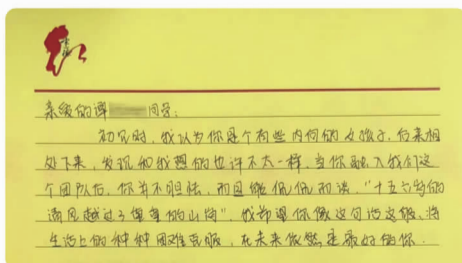 亲爱的谭 同学:
初见时,我认为你是个有些内向的女孩子,后来相
处下来,发现和我想的也许不太一样,当你融入我们这
个团队后,你并不胆怯,而且能侃侃而谈。"十五六岁的
遇见越过了 的山海",我希望你像这句话这般,将
生活上的种种困难克服,在未来依然是最好的你.